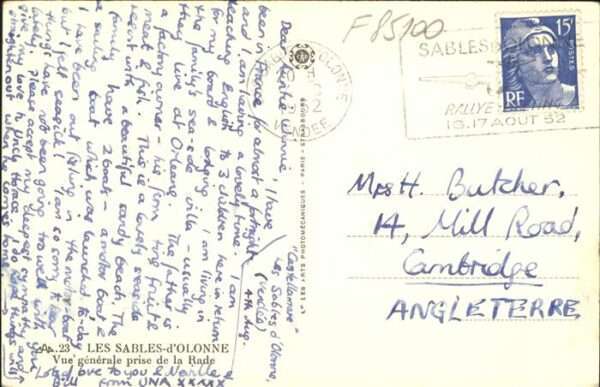 "Castellamare"
Les Sables d'Olonne,
(Vendée)
4th Aug.
Dear Auntie Winnie, I have
been in France for almost a fortnight
and I am having a lovely time. I am
teaching English to 3 children here in return
for my board & lodging. I am living in
the family's sea-side villa - usually
they live at Orleans. The father is
a factory owner - his firm tins fruit &
meat & fish. This is a lovely seaside
resort with a beautiful sandy beach. The
family have 2 boats - a motor boat &
a sailing boat which was launched to-day.
I have been out fishing in the motor-boat
but I felt seasick! I am so sorry to hear
things have not been going too well with you
lately. Please accept my deepest sympathy and
give my love to Uncle Horace. So do hope things will
straighten out when he comes home.
Lots of love to you & Neville &
Bill from UNA XXXXX
F85100
SABLES D'OLONNE
VENDEE
SABLES D'OLONNE
RALLYE
16.17 AOUT 52
15F
POSTES
RF
Mrs H. Butcher,
14, Mill Road,
Cambridge
ANGLETERRE
LES ARTS PHOTOMÉCANIQUES - PARIS - STRASBOURG
A. 23 LES SABLES-d'OLONNE
Vue générale prise de la Rade